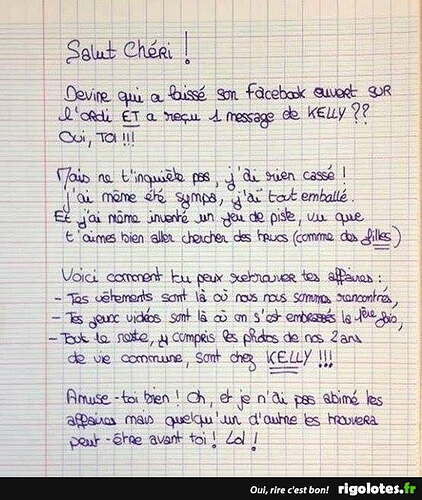 Salut Chéri !
Devine qui a laissé son facebook ouvert sur
l'ordi ET a reçu 1 message de KELLY ??
Oui, TOI !!!
Mais ne t'inquiète pas, j'ai rien cassé !
j'ai même été sympa, j'ai tout emballé.
Et j'ai même inventé un jeu de piste, vu que
t'aimes bien aller chercher des trucs (comme des filles)
Voici comment tu peux retrouver tes affaires :
- Tes vêtements sont là où nous nous sommes rencontrés,
- Tes jeux vidéos sont là où on s'est embrassés la 1ère fois,
- Tout le reste, y compris les photos de nos 2 ans
de vie commune, sont chez KELLY !!!
Amuse-toi bien ! Oh, et je n'ai pas abimé les
affaires mais quelqu'un d'autre les trouvera
peut-être avant toi ! Lol !
Oui, rire c'est bon! rigolotes.fr